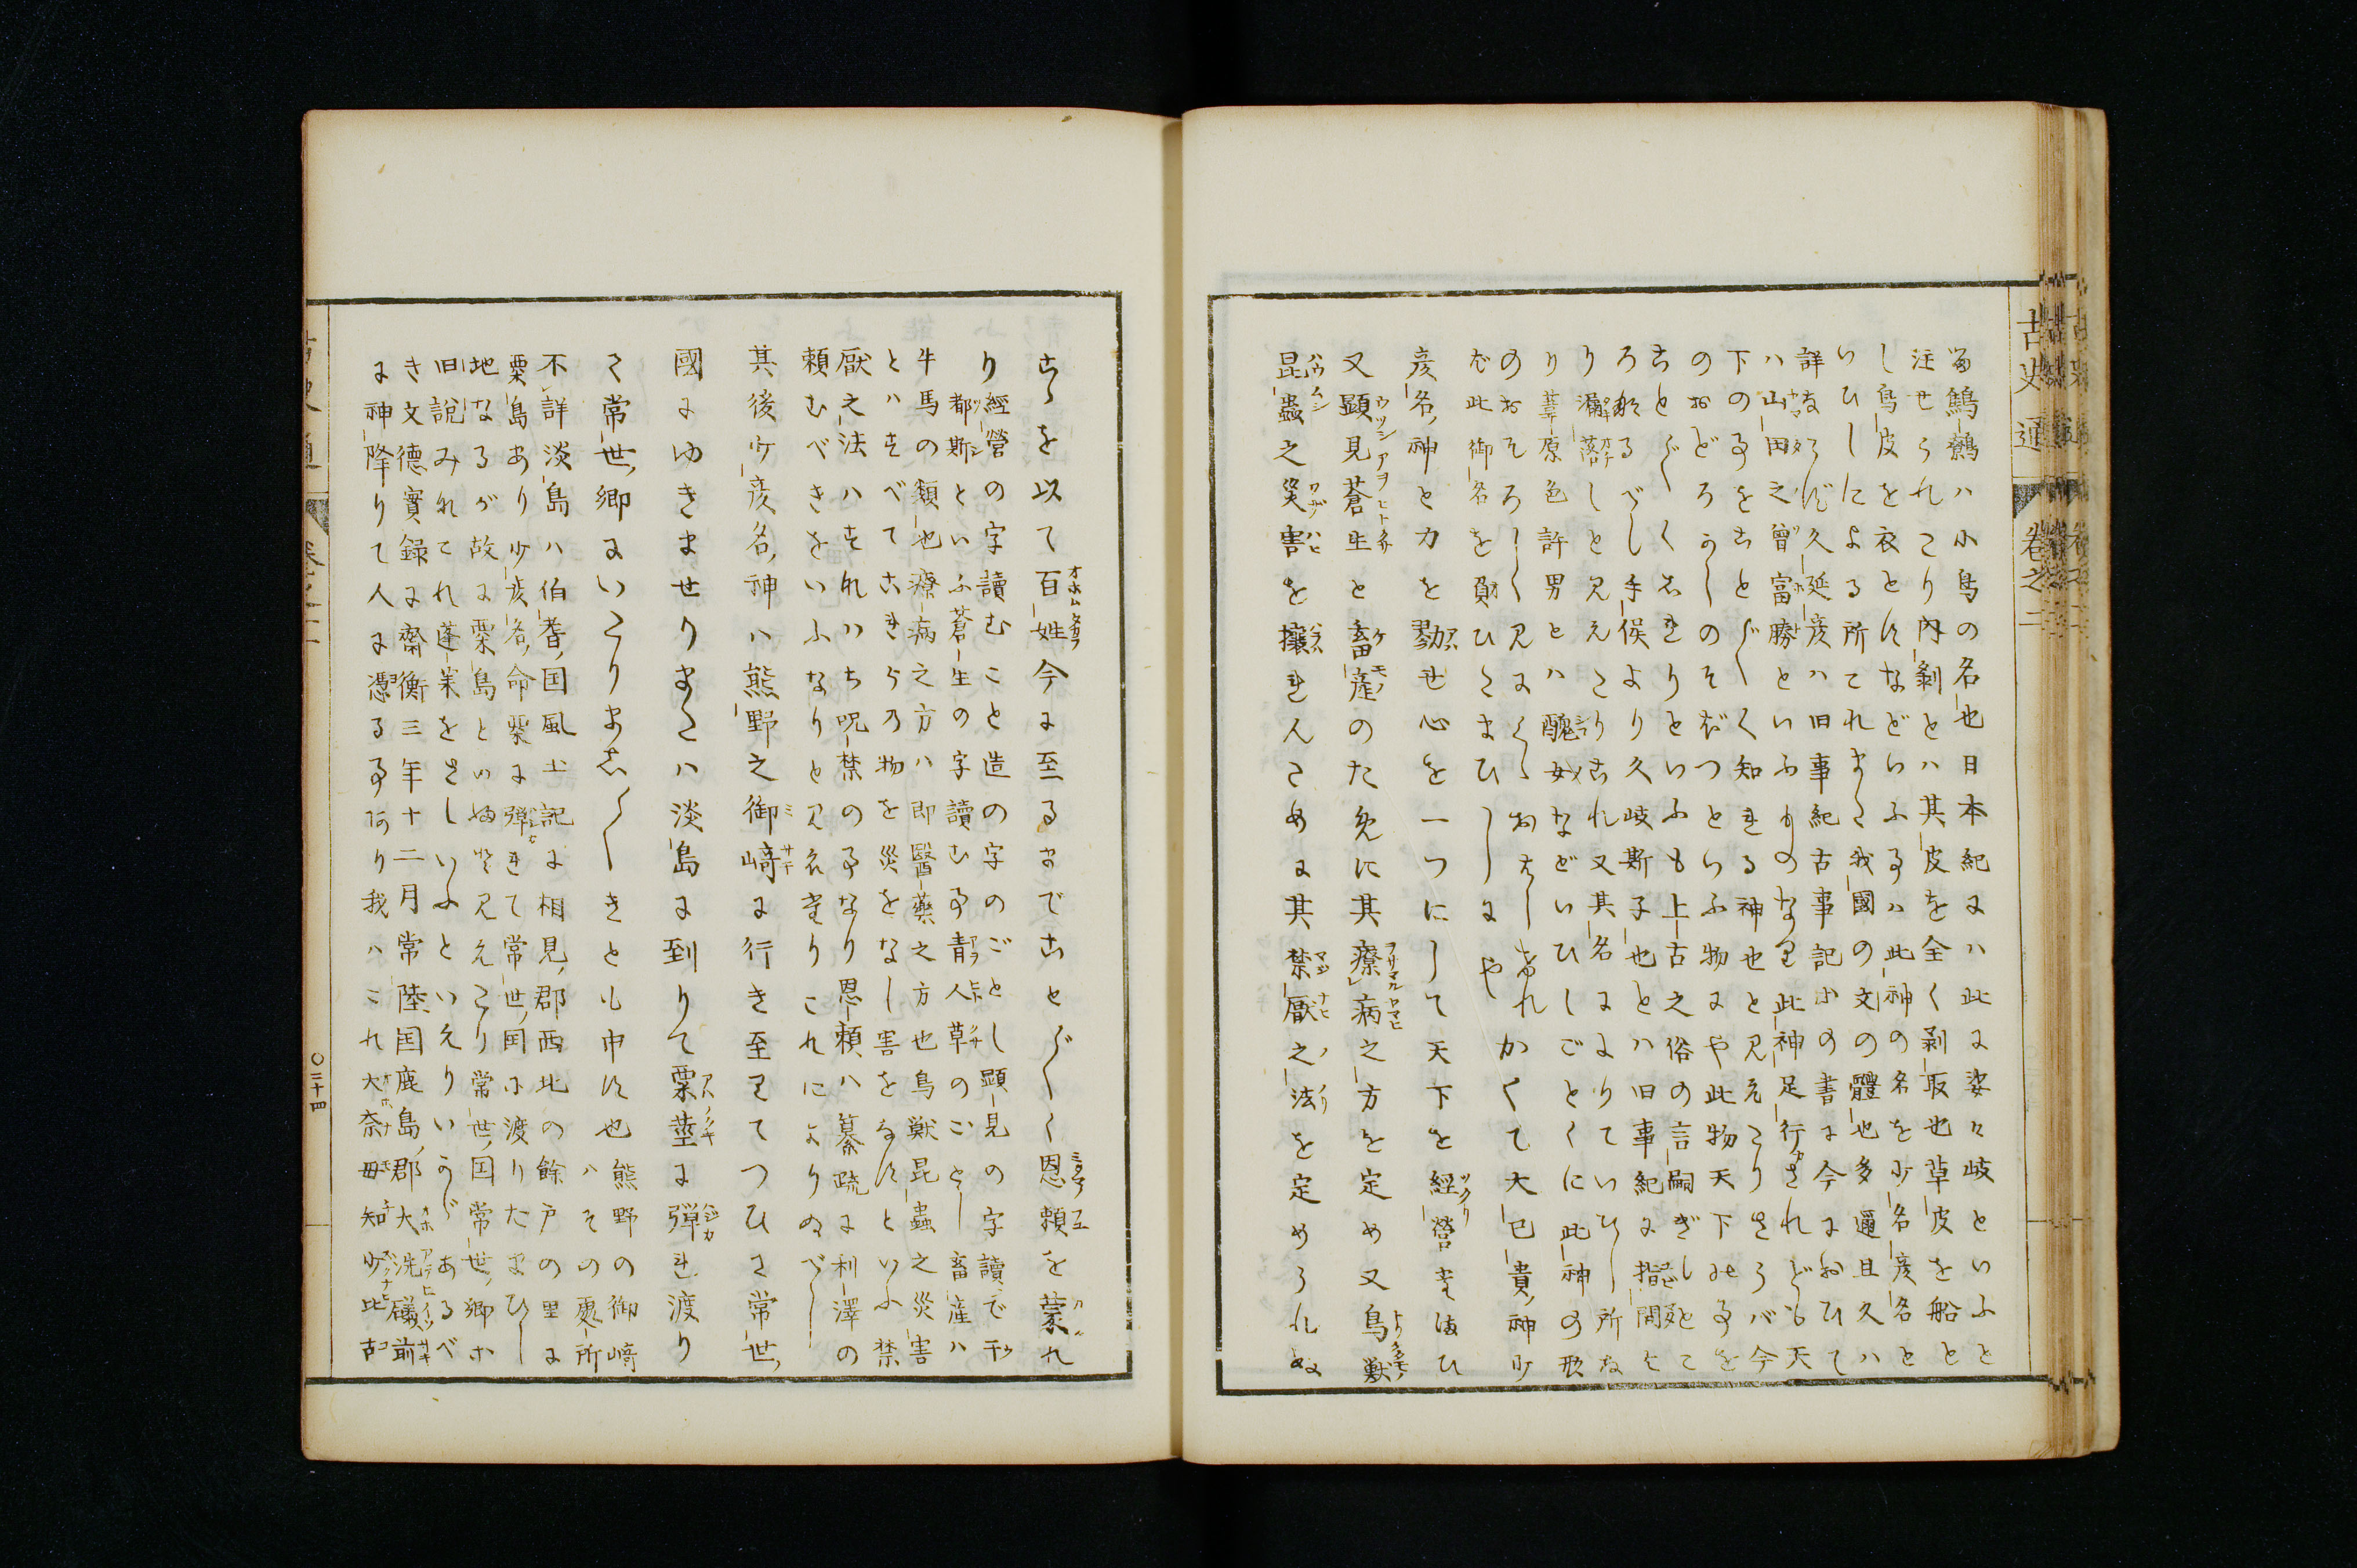 鷦鷯ハ小鳥の名也日本紀にハ此に娑々岐といふと
注せられたり内剝とハ其皮を全く剥取也草皮を船と
し鳥皮を衣とすなどいふ事ハ此神の名を少名彦名と
いひしによる所てれまた我國の文の體也多邇且久ハ
詳ならず久延彦ハ旧事紀古事記の書に今におひて
ハ山田之曾富騰といふものなり此神足行ざれども天
下の事をことごとく知れる神也と見えたりさらバ今
のおどろかしのそほづといふ物にや此物天下の事を
ことごとくしれりといふも上古之俗の言嗣ぎしとこ
ろなるべし手俣より久岐斯子也とハ旧事紀に指間よ
り漏落しと見えたりこれ又其名によりていひし所な
り葦原色許男とハ醜女などいひしごとくに此神の形
のおそろしく見にくゝおはしければ
此御名を負ひたまひしにや
かくて大已貴神少
彦名神と力を勠せ心を一つにして天下を經營たまひ
又顯見蒼生と畜産のために其療病之方を定め又鳥獣
昆蟲之災害を攘はんために其禁厭之法を定められぬ
こゝを以て百姓今に至るまでことごとく恩頼を蒙れ
り
經營の字讀むこと造の字のごとし顯見の字讀で于
都斯といふ蒼生の字讀む事青人草のごとし畜産ハ
牛馬の類也療病之方ハ即醫藥之方也鳥獣昆蟲之災害
とハすべてこれらの物を災をなし害をなすといふ禁
厭之法ハそれハち呪禁の事なり恩頼ハ纂疏に利澤の
頼むべきをいふなりと見えたりこれによりぬべし
其後少彦名神ハ熊野之御﨑に行き至りてつひに常世
國にゆきませりまたハ淡島に到りて粟莖に弾れ渡り
て常世郷にいたりましゝきとも申す也
熊野の御﨑
ハその處所
不詳淡島ハ伯耆国風土記に相見郡西北の餘戸の里に
粟島あり少彦名命粟に弾れて常世国に渡りたまひし
地なるが故に粟島といふと見えたり常世国常世郷ホ
旧説みれてれ蓬莱をさしいふといえりいかゞあるべ
き文德實録に齋衡三年十二月常陸国鹿島郡大洗磯前
に神降りて人に憑る事あり我ハこれ大奈毋知少比古
古史通
巻之二
〇三十四